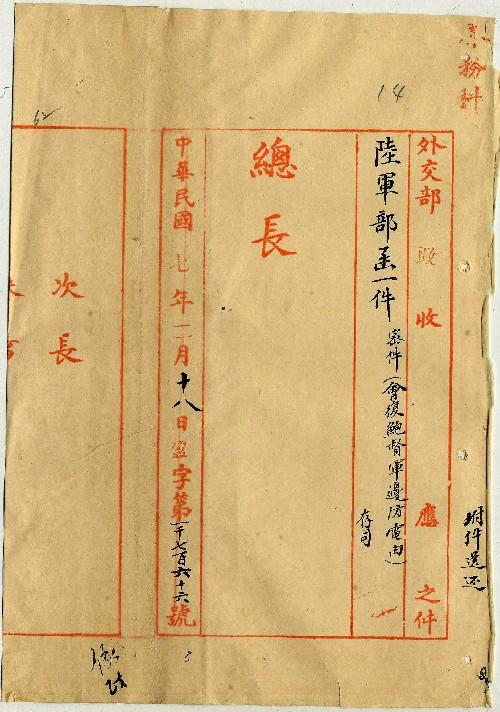 14
外交部 收 應 之件
附件送还
陸軍部函一件
密件(會復鮑督軍邊防電由)
存司
總長
中華民國七年二月十八日 字第一千七百六十六號
次長